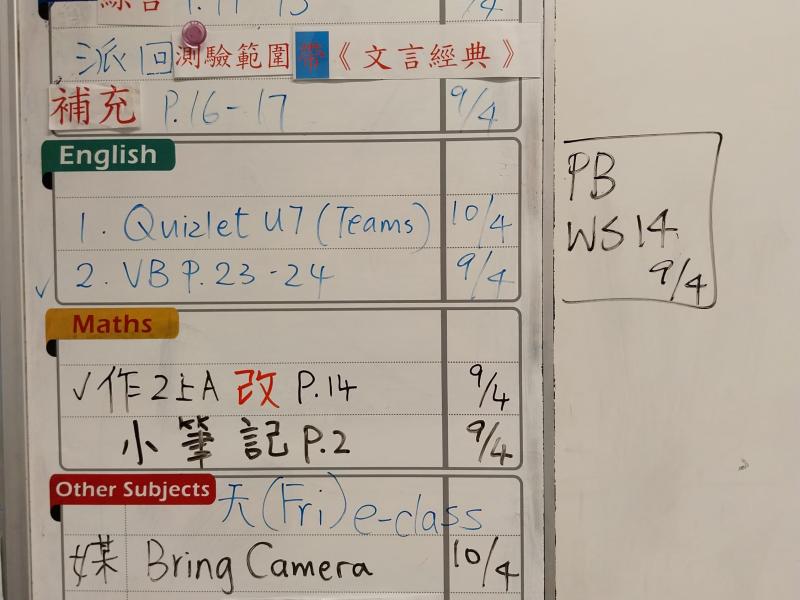 綜合 P.11-13 9/4
派回測驗範圍帶《文言經典》
補充 P.16-17 9/4
English
1. Quizlet U7 (Teams) 10/4
✓ 2. VB P.23-24 9/4
Maths
✓作2上A 改 P.14 9/4
小筆記 P.2 9/4
Other Subjects 天(Fri) e-class
媒 Bring Camera 10/4
PB
WS 14
9/4